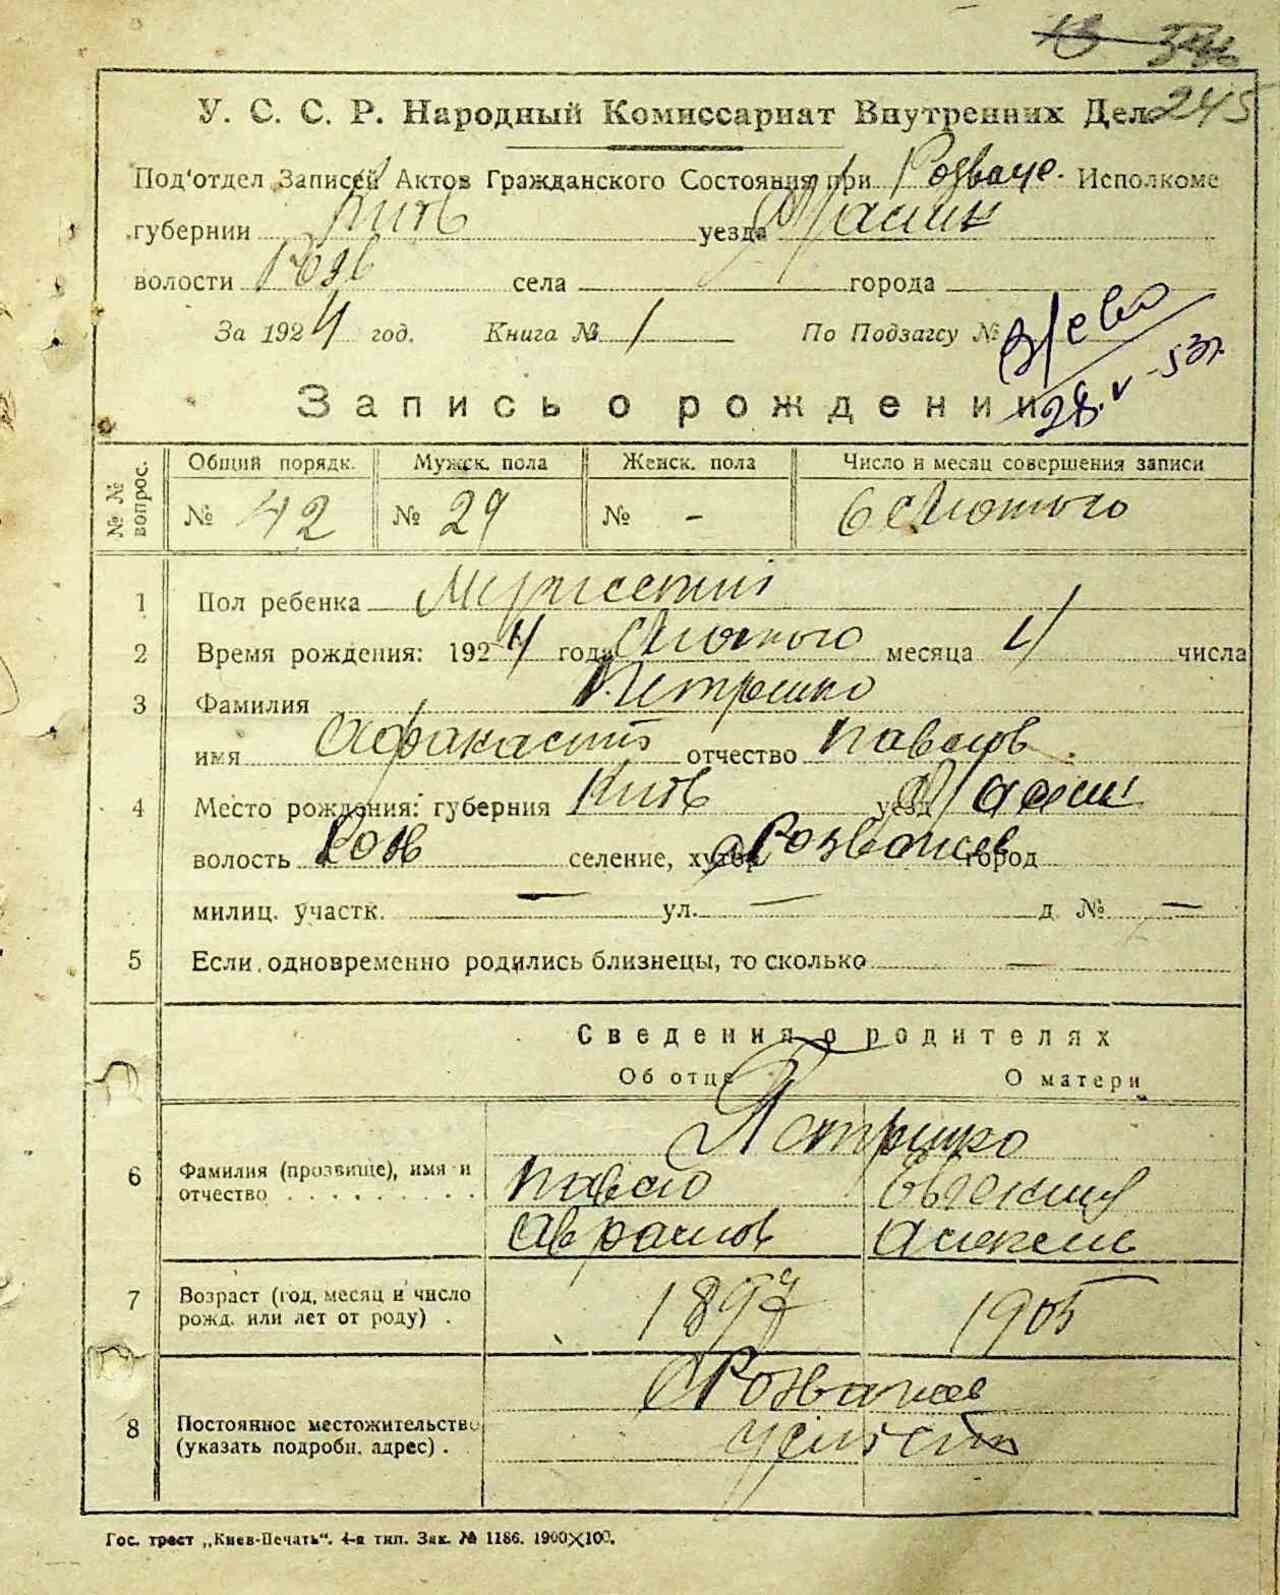 245
У. С. С. Р. Народный Комиссариат Внутренних Дел.
Под'отдел Записей Актов Гражданского Состояния при Розваже. Исполкоме
губернии Київ уезда
волости Розв села города
За 1924 год. Книга № 1 По Подзагсу №
28.V-53г.
Запись о рождении
№ № вопрос. Общий порядк. Мужск. пола Женск. пола Число и месяц совершения записи
№ 42 № 29 № - 6 Лютого
1 Пол ребенка Мужеский
2 Время рождения: 1924 года Лютого месяца 4 числа
3 Фамилия Петренко
имя Афанасий отчество Павлов
4 Место рождения: губерния Київ уезд
волость Розв селение, хутор Розважев город
милиц. участк. — ул. — д. № —
5 Если одновременно родились близнецы, то сколько —
Сведения о родителях
Об отце О матери
6 Фамилия (прозвище), имя и
отчество . . . . . . . . .
Павло
Аврамов
7 Возраст (год, месяц и число
рожд. или лет от роду) .
1897 1905
8 Постоянное местожительство
(указать подробн. адрес) .
Розважев
Гос. трест „Киев-Печать". 4-я тип. Зак. № 1186. 1900×100.